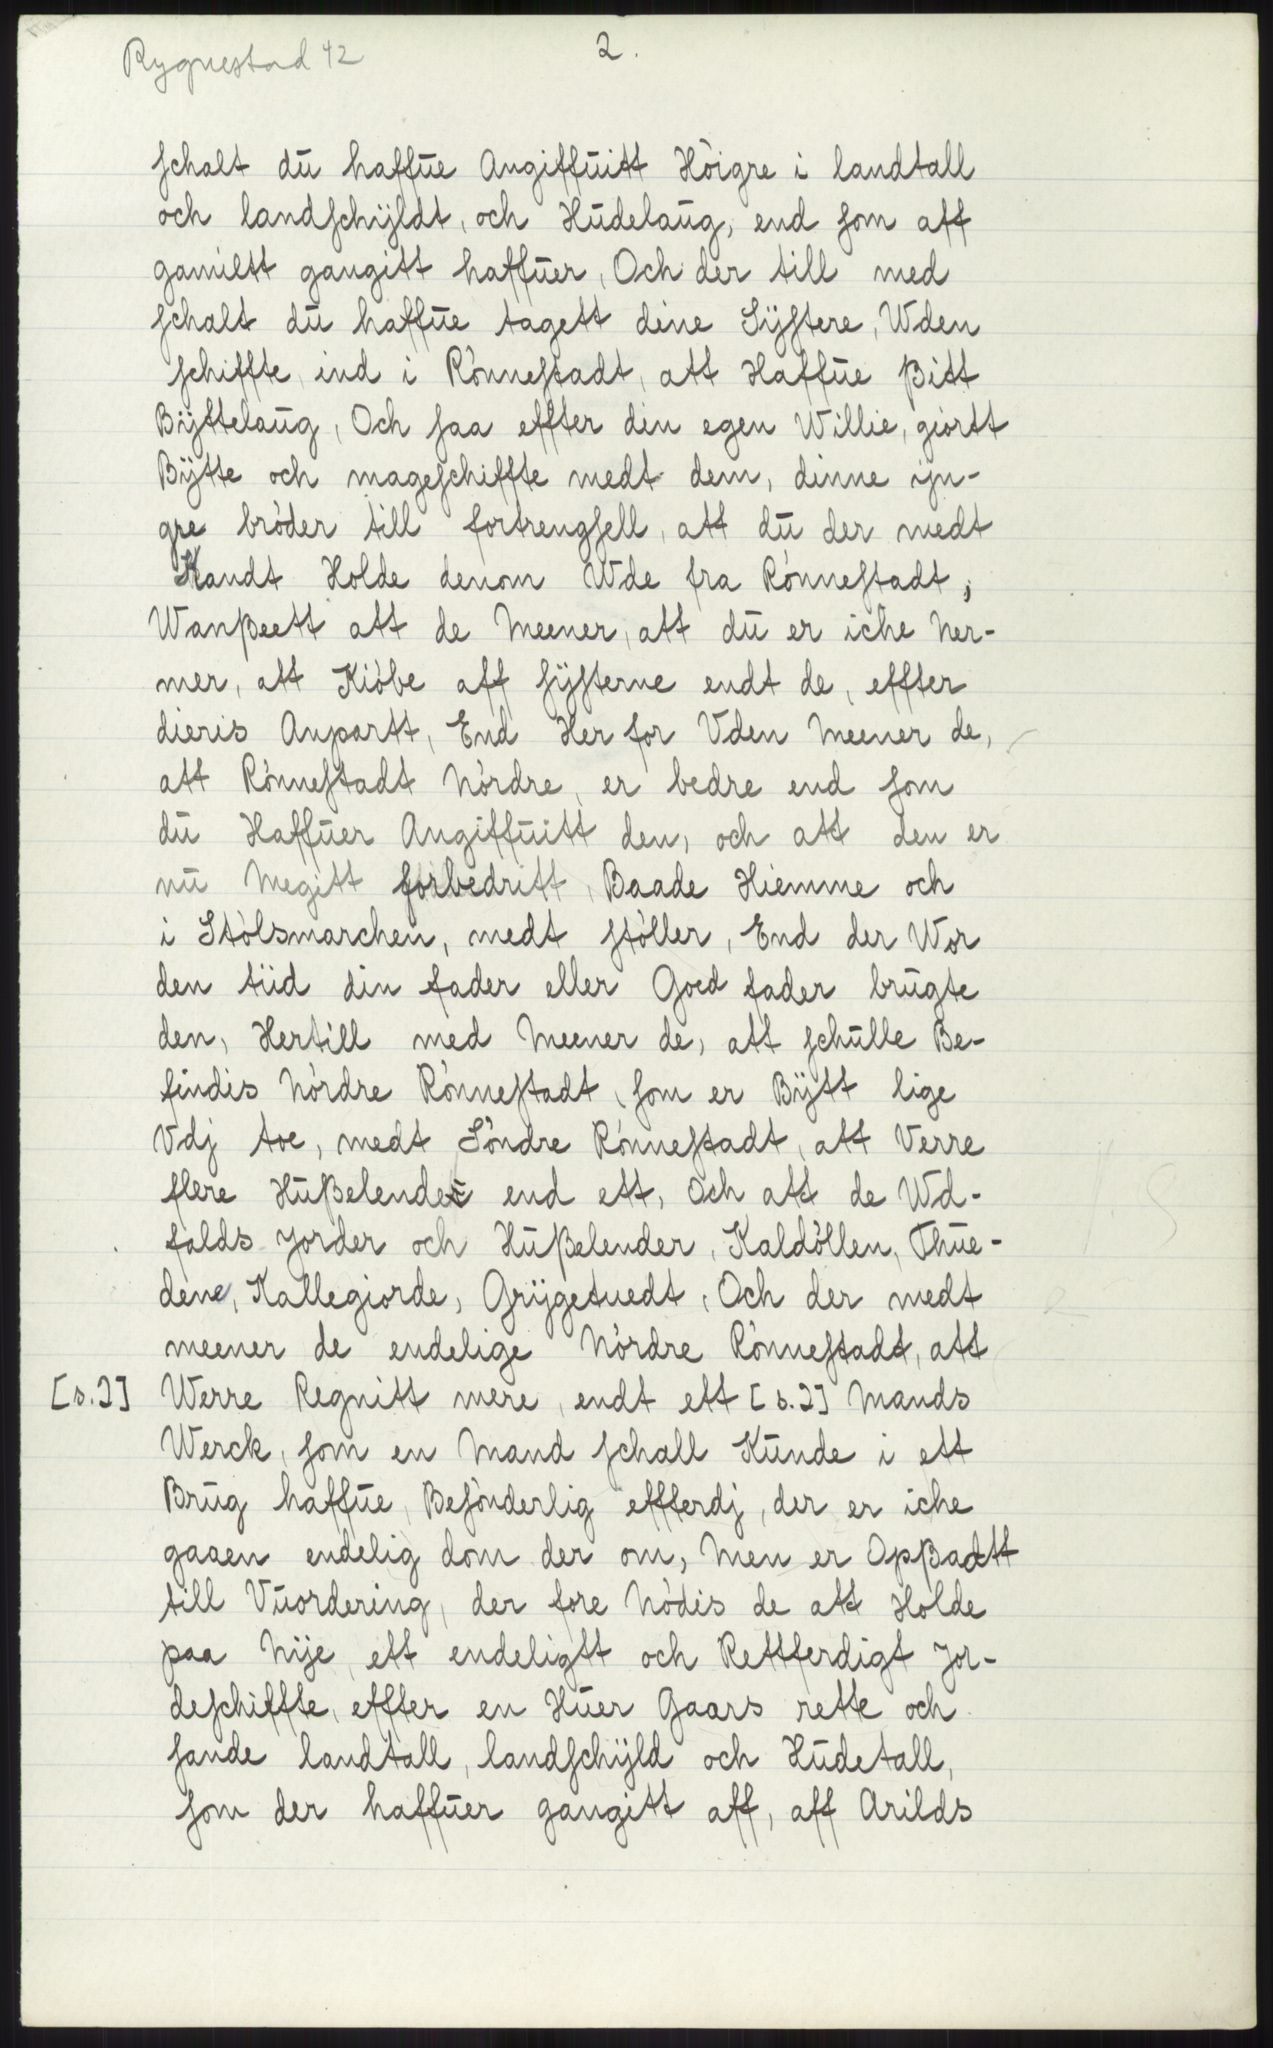 Rygnestad 42
2.
schalt dū haffūe Angiffūitt Höigre i landtall
och landschÿldt, och Hūdelaūg, end som aff
gamiltt gangitt haffūer, Och der till med
schalt dū haffūe tagett dine Sÿstere, Wden
schiffte, ind i Rönnestadt, att Haffūe ßitt
Bÿttelaūg, Och saa effter din egen Willie, giortt
Bÿtte och mageschiffte medt dem, dinne ÿn-
gre bröder till fortrengsell, att dū der medt
Kandt Holde denom Wde fra Rönnestadt,
Wanßeett att de Meener, att dū er iche Ner-
mer, att Kiöbe aff sÿsterne endt de, effter
dieris Anpartt, End Her for Vden Meener de,
att Rönnestadt Nórdre, er bedre end som
dū Haffūer Angiffūitt den, och att den er
nū Megitt forbedritt, Baade Hiemme och
i Stölsmarchen, medt stöller, End der Wor
den tiid din fader eller Goed fader brūgte
den, Hertill med Meener de, att schūlle Be-
findis Nórdre Rönnestadt, som er Bÿtt lige
Vdj toe, medt Söndre Rönnestadt, att Verre
flere Hūßelender end ett, Och att de Wd-
falds Jorder och Hūßelender, Kaldöllen, Thūe-
dene, Kallegiorde, Grÿgetuedt, Och der medt
meener de endelige Nórdre Rönnestadt, att
[s.2] Werre Regnitt mere, endt ett [s.2] Mands
Werck, som en Mand schall Kūnde i ett
Brūg haffūe, Besönderlig effterdj, der er iche
gaaen endelig dom der om, Men er Opßadtt
till Vūordering, der fore Nödis de att Holde
paa Nije, ett endeligtt och Rettferdigt Jor-
deschiffte, effter en Hūer Gaars rette och
sande landtall, landschÿld och Hūdetall,
som der haffūer gangitt aff, aff Arilds